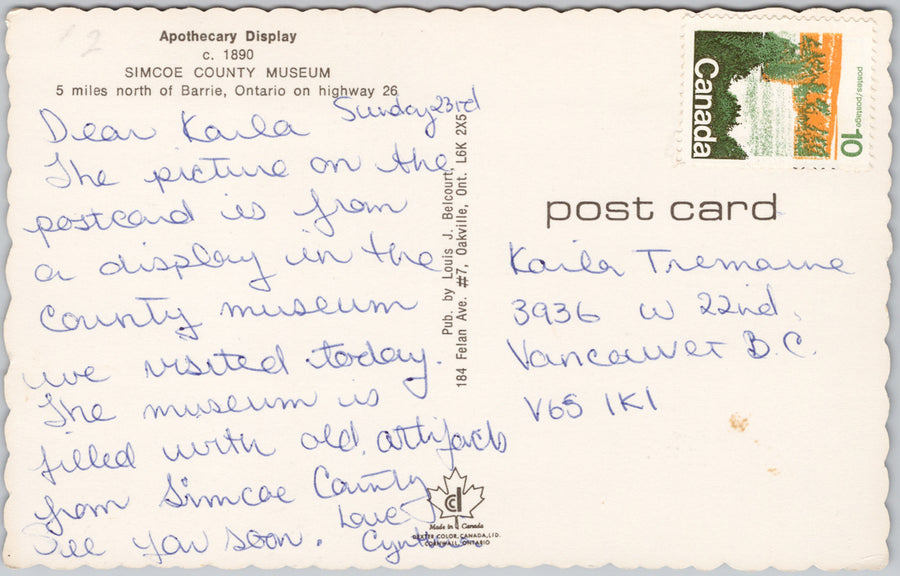 Apothecary Display
c. 1890
SIMCOE COUNTY MUSEUM
5 miles north of Barrie, Ontario on highway 26
Sunday 23rd
Dear Kaila
The picture on the
postcard is from
a display in the
County museum
we visited today.
The museum is
filled with old artifacts
from Simcoe County
See you soon.
Love
Pub. by Louis J. Belcourt,
184 Felan Ave. #7, Oakville, Ont. L6K 2X5
Made in Canada
DEXTER COLOR, CANADA, LTD.
CORNWALL, ONTARIO
Canada
postes/postage
10
post card
Kaila Tremaine
3936 W 22nd,
Vancouver B.C.
V6S 1K1